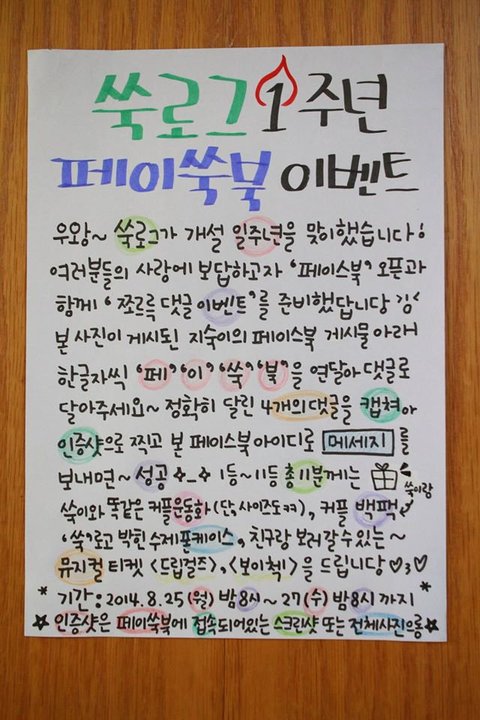 쑥로그 1주년
페이쑥북 이벤트
우왕~ 쑥로그가 개설 일주년을 맞이했습니다!
여러분들의 사랑에 보답하고자 '페이스북' 오픈과
함께 '쪼르륵 댓글 이벤트'를 준비했답니당
본 사진이 게시된 지숙이의 페이스북 게시물 아래
한글자씩 "페" "이" "쑥" "북"을 연달아 댓글로
달아주세요~ 정확히 달린 4개의 댓글을 캡쳐아
인증샷으로 찍고 본 페이스북 아이디로 메세지를
보내면~ 성공 ✧_✧ 1등~11등 총 11분께는
쑥이랑
쑥이와 똑같은 커플운동화(단, 사이즈도 ㅋㅋ), 커플 백팩,
'쑥'로고 박힌 수제 폰케이스, 친구랑 보러갈 수 있는~
뮤지컬 티켓 <드립걸즈>, <보이첵!>을 드립니당 ♡3♡
* 기간: 2014.8.25(월) 밤 8시~27(수) 밤 8시 까지 *
☆ 인증샷은 페이쑥북에 접속되어있는 스크린샷 또는 전체사진으롱 ☆